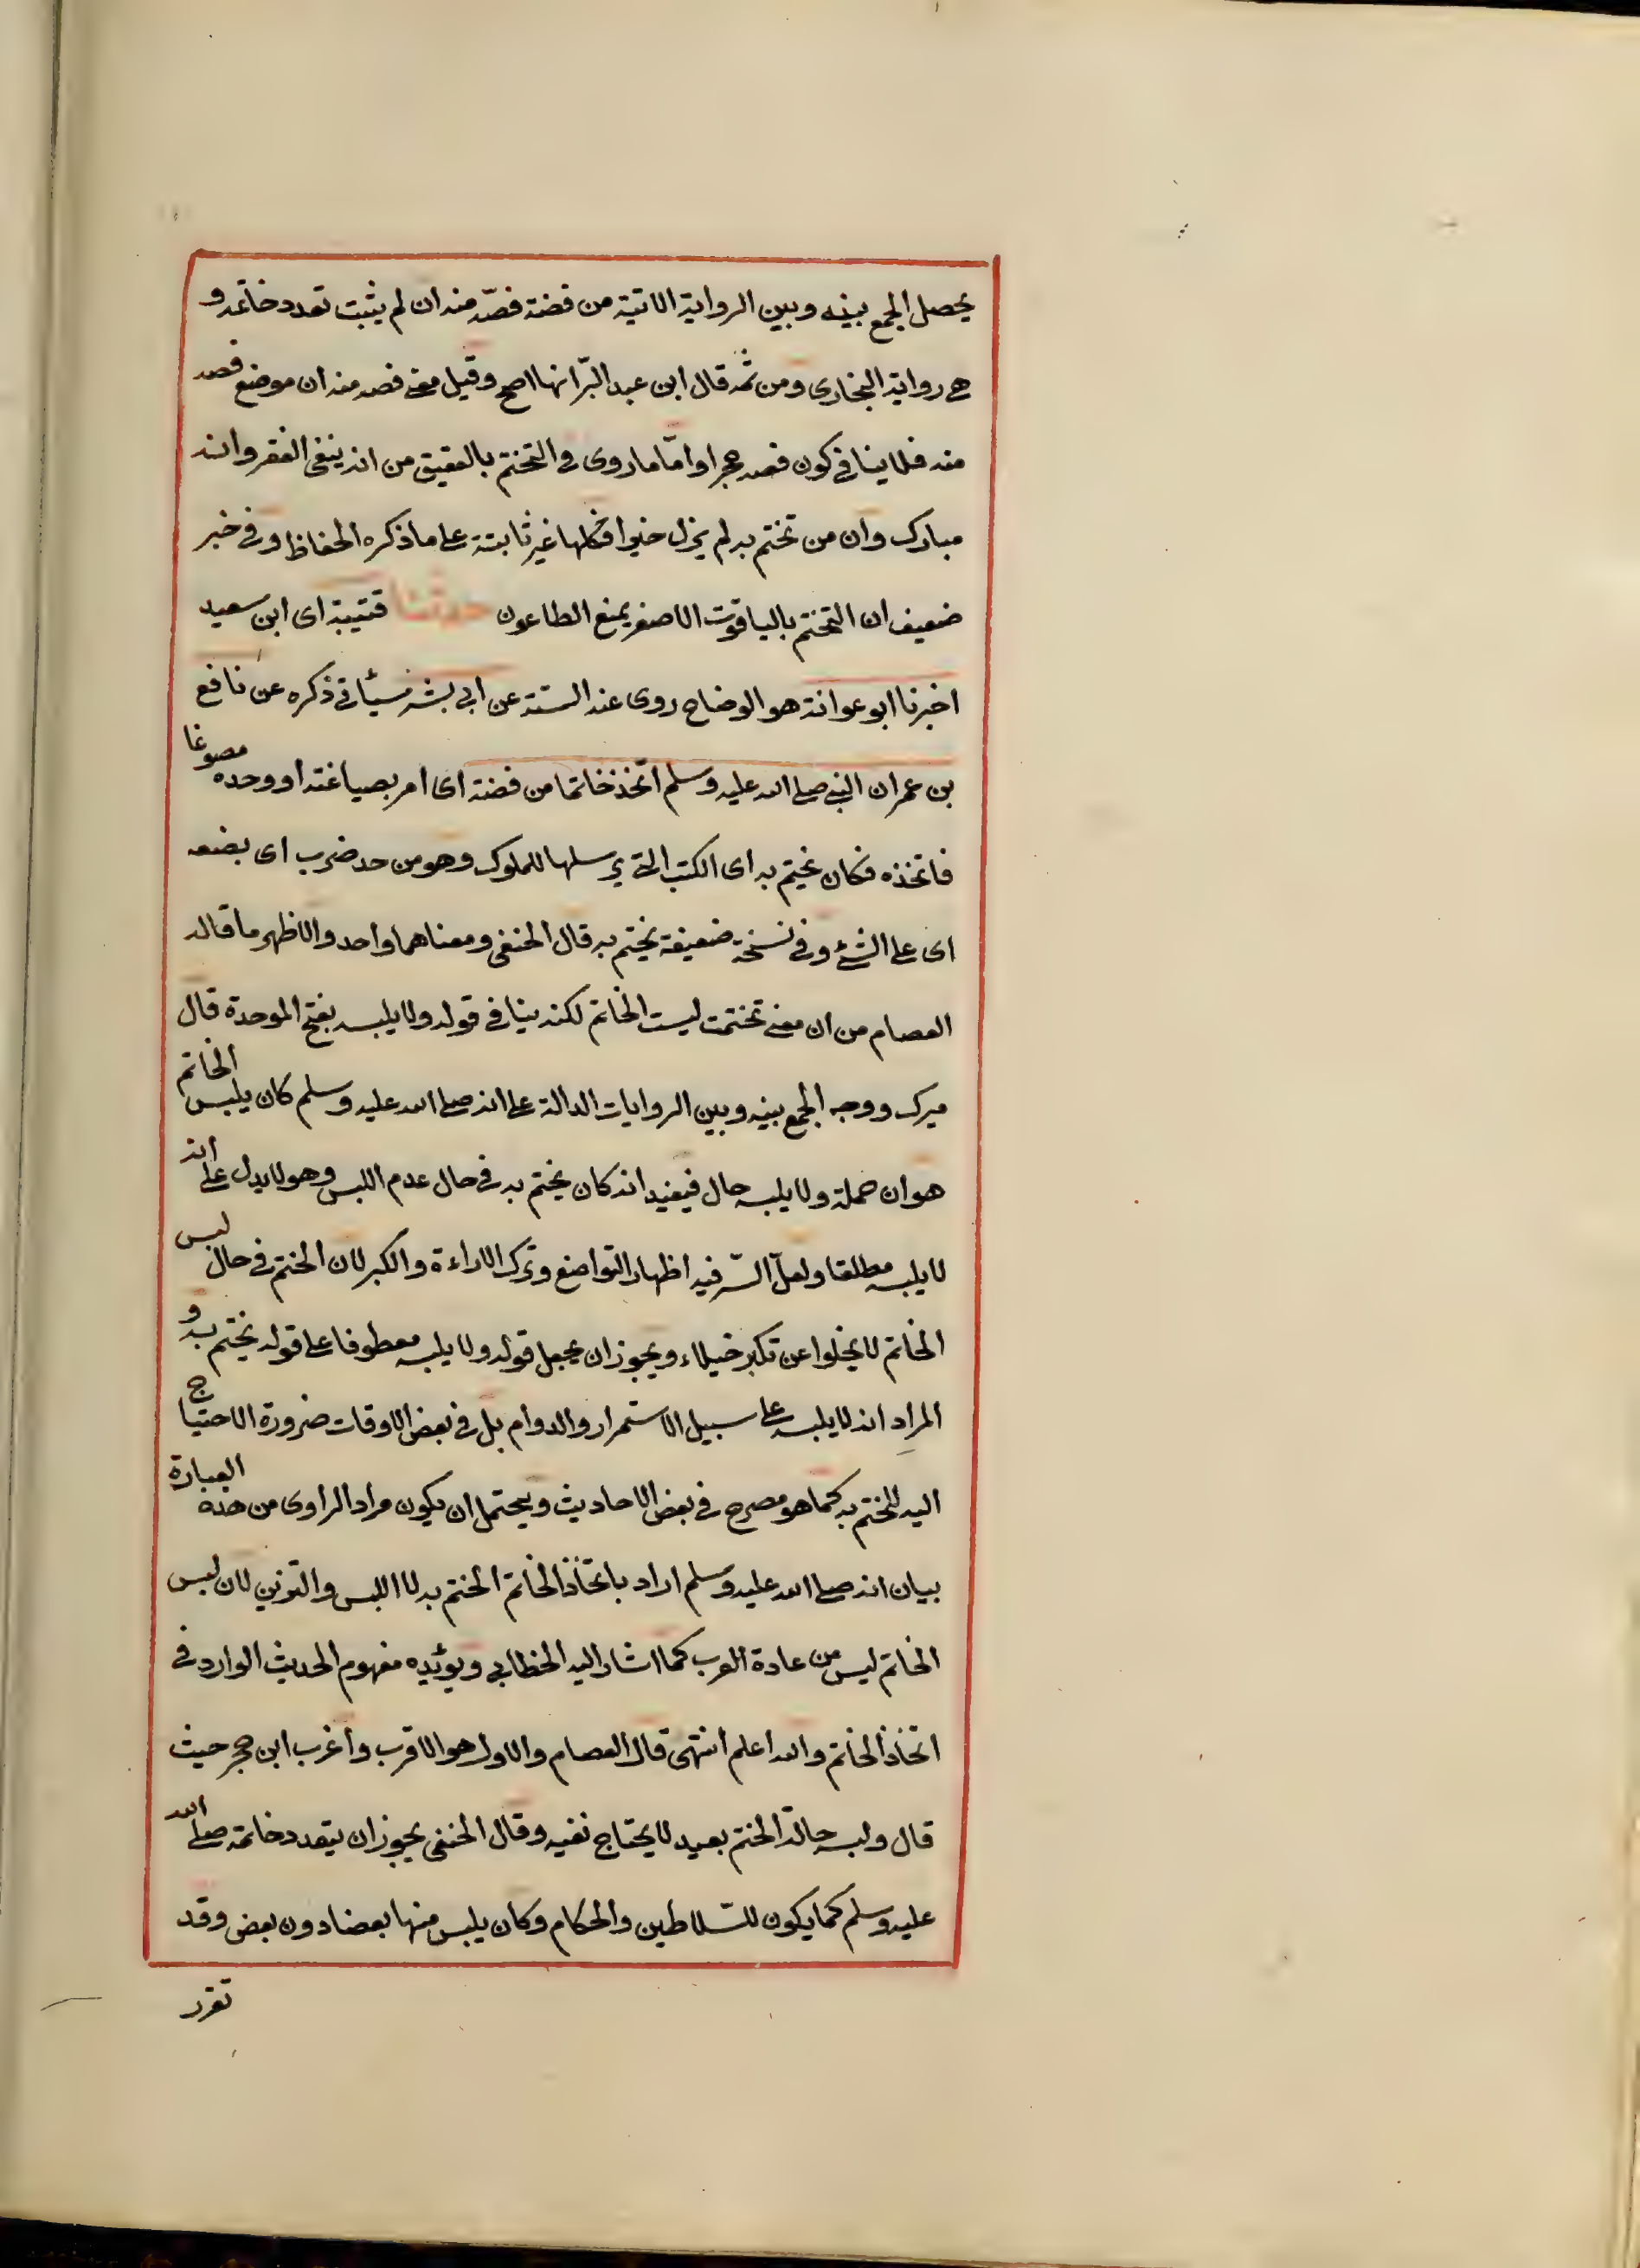 يحصل الجمع بينه وبين الرواية الاتية من فضة فصّه منه ان لم يثبت تعدد خاتمه و
هي رواية البخارى ومن ثمه قال ابن عبد البرّ انها اصح وقيل معنى فصه منه ان موضع فصه
منه فلا ينافى كون فصه حجرا وامّا ما روى فى التختم بالعقيق من انه ينفى الفقر وانه
مبارك وان من تختم به لم يزل خيرا فكلها غير ثابتة على ما ذكره الحفاظ وفى خبر
ضعيف ان التختم بالياقوت الاصفر يمنع الطاعون حدثنا قتيبة اى ابن سعيد
اخبرنا ابو عوانة هو الوضاح روى عنه الستة عن ابى بشر سيأتى ذكره عن نافع
بن عمر ان النبى صلى الله عليه وسلم اتخذ خاتما من فضة اى امر بصياغته او وجده مصوغا
فاتخذه فكان يختم به اى الكتب التى يرسلها للملوك وهو من حد ضرب اى يضعه
اى على الشئ وفى نسخة ضعيفة يختم به قال الحنفى ومعناهما واحد والاظهر ما قاله
العصام من ان معنى تختمت لبست الخاتم لكنه ينافى قوله ولا يلبسه بفتح الموحدة قال
ميرك ووجه الجمع بينه وبين الروايات الدالة على انه صلى الله عليه وسلم كان يلبس الخاتم
هو ان جملة ولا يلبسه حال فيفيد انه كان يختم به فى حال عدم اللبس وهو لا يدل على انه
لا يلبسه مطلقا ولعل السّر فيه اظهار التواضع وترك الاراءة والكبر لان الختم فى حال لبس
الخاتم لا يخلوا عن تكبر خيلاء ويجوز ان يجعل قوله ولا يلبسه معطوفا على قوله يختم به و
المراد انه لا يلبسه على سبيل الاستمرار والدوام بل فى بعض الاوقات ضرورة الاحتياج
اليه للختم به كما هو مصرح فى بعض الاحاديث ويحتمل ان يكون مراد الراوى من هذه العبارة
بيان انه صلى الله عليه وسلم اراد باتخاذ الخاتم الختم به لا اللبس والتزين لان لبس
الخاتم ليس من عادة العرب كما اشار اليه الخطابى ويؤيده مفهوم الحديث الوارد فى
اتخاذ الخاتم والله اعلم انتهى قال العصام والاول هو الاقرب واغرب ابن حجر حيث
قال ولبسه حالة الختم بعيد لا يحتاج نفيه وقال الحنفى يجوز ان يتعدد خاتمه صلى الله
عليه وسلم كما يكون للسّلاطين والحكام وكان يلبس منها بعضا دون بعض وقد
تقرر